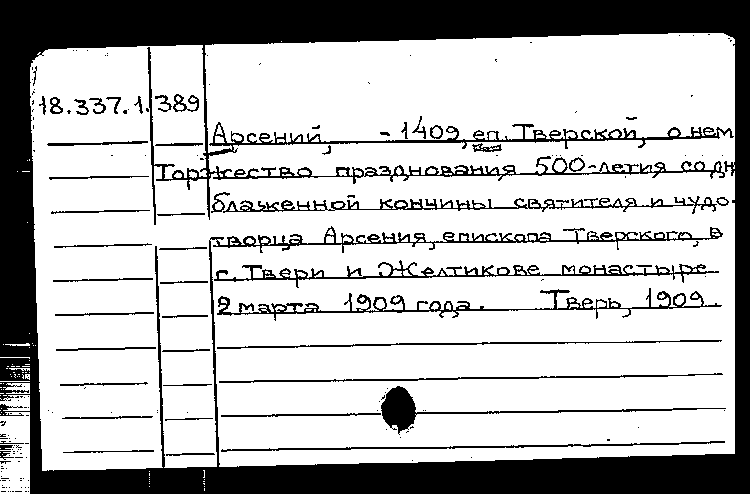 18.337.1.389
Арсений, - 1409, еп. Тверской, о нем
Торжество празднования 500-летия со дн
блаженной кончины святителя и чудо-
творца Арсения, епископа Тверского, в
г. Твери и Желтикове монастыре
2 марта 1909 года. Тверь, 1909.